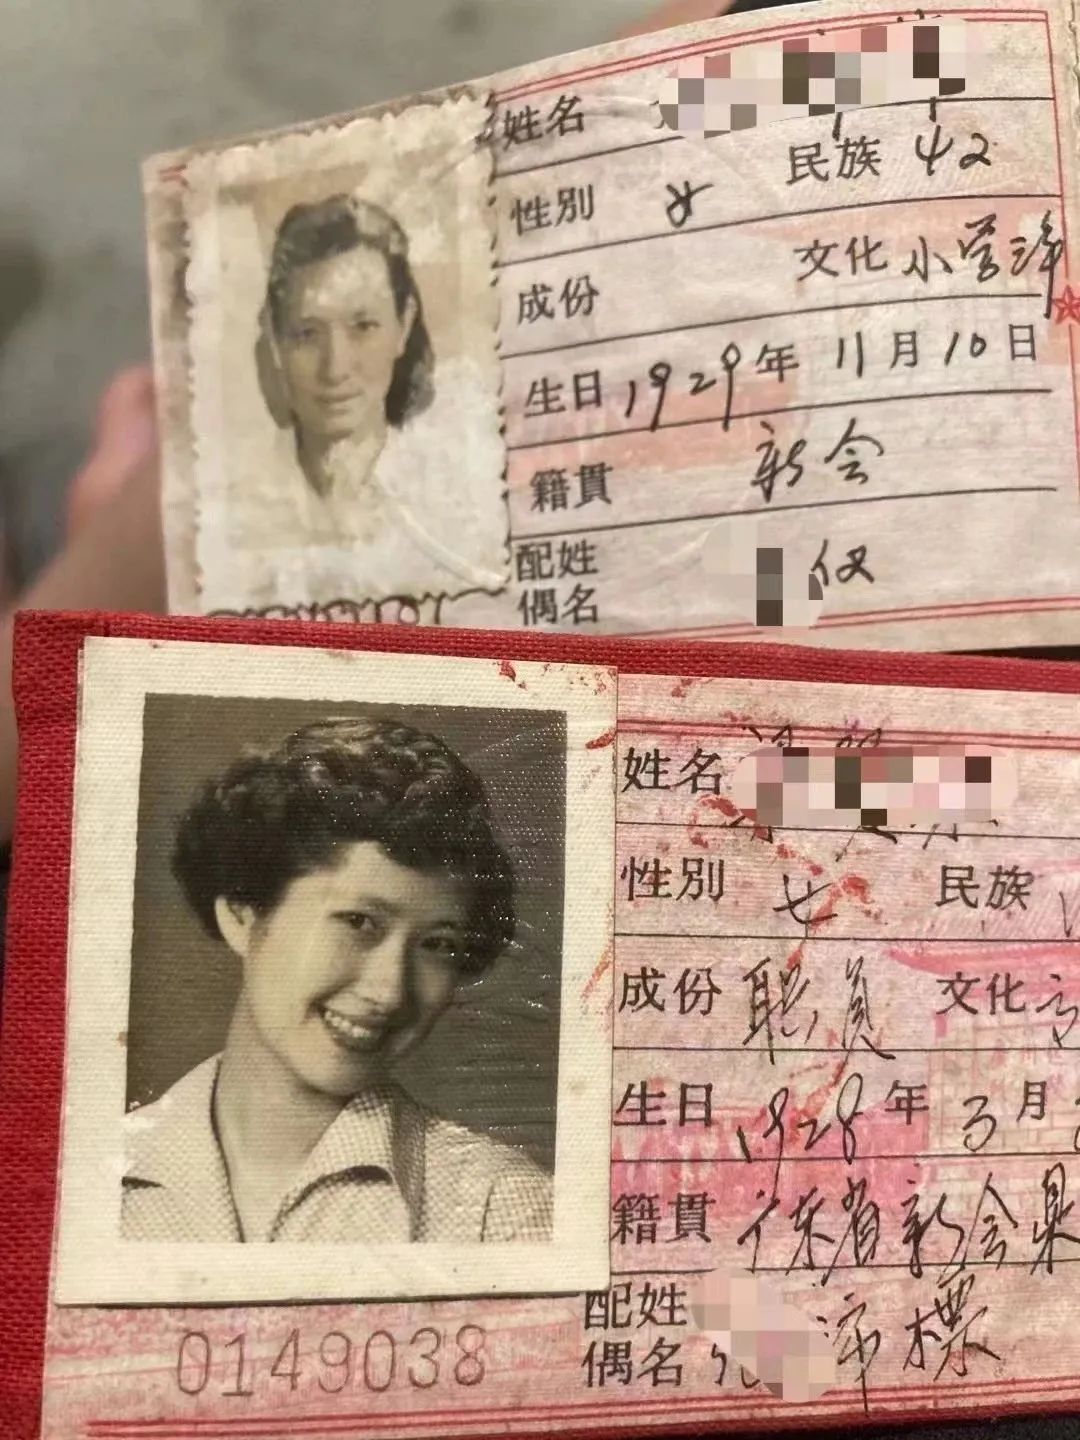 姓名
性別 女 民族 汉
成份 文化 小学
生日 1929年 11月10日
籍貫 新会
配姓
偶名 仪
姓名
性別 女 民族
成份 职员 文化
生日 1928年 3月
籍貫 广东省新会県
配姓
偶名 標
0149038